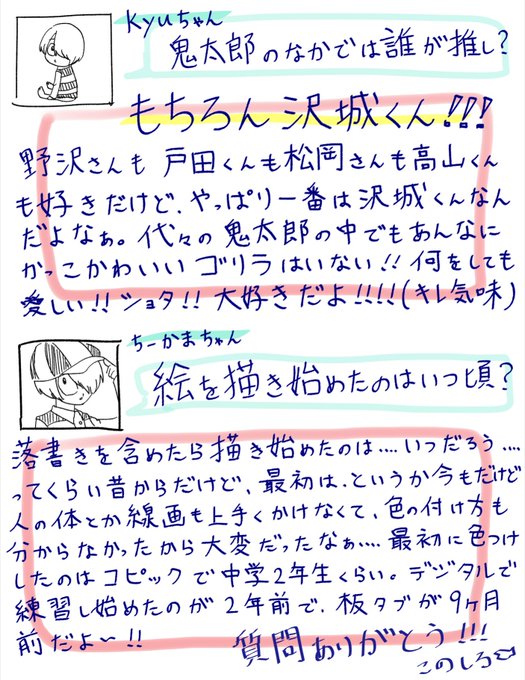 Kyuちゃん
鬼太郎のなかでは誰が推し?
もちろん沢城くん!!!
野沢さんも戸田くんも松岡さんも高山くん
も好きだけど、やっぱり一番は沢城くんなん
だよなぁ。代々の鬼太郎の中でもあんなに
かっこかわいいゴリラはいない!!何をしても
愛しい!!ショタ!!大好きだよ!!!!(キレ気味)
ちーかまちゃん
絵を描き始めたのはいつ頃?
落書きを含めたら描き始めたのは....いつだろう....
ってくらい昔からだけど、最初は、というか今もだけど
人の体とか線画も上手くかけなくて、色の付け方も
分からなかったから大変だったなぁ....最初に色つけ
したのはコピックで中学2年生くらい。デジタルで
練習し始めたのが2年前で、板タブが9ヶ月
前だよ〜!!
質問ありがとう!!!
このしろ